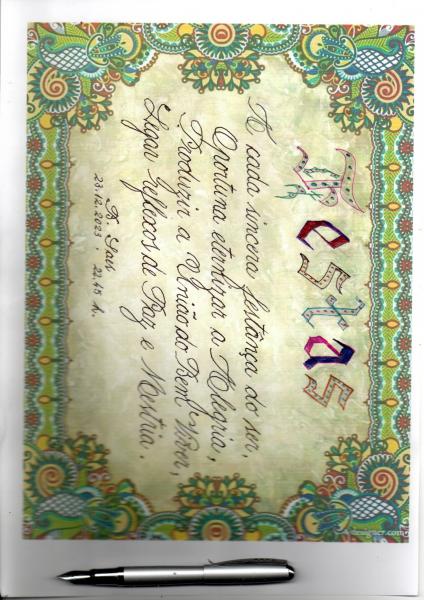 Festas
A cada sincera festança do ser,
Oportuna eternizar a Alegria,
Produzir a União do Bem Viver,
Legar Reflexos de Paz e Mestria.
23.12.2023, 22.45 h.